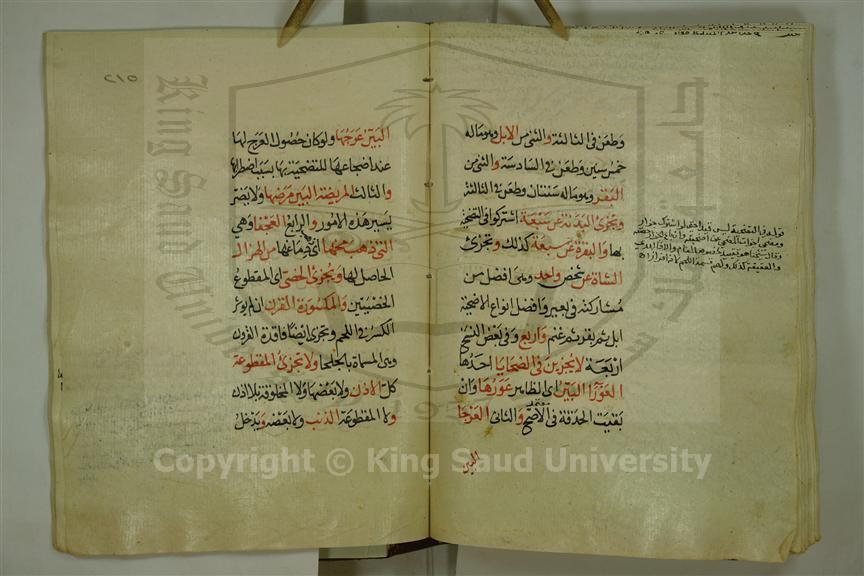 وطعن في الثالثة والثني من الابل وهو ما له
خمس سنين وطعن في السادسة والثني من
البقر وهو ما له سنتان وطعن في الثالثة
وتجزي البدنة عن سبعة اشتركوا في التضحية
بها والبقرة عن سبعة كذلك وتجزي
الشاة عن شخص واحد وهي افضل من
مشاركته في بعير وافضل انواع الاضحية
ابل ثم بقر ثم غنم واربع وفي بعض النسخ
اربعة لا يجزين في الضحايا احدها
العورا البين اي الظاهر عورها وان
بقيت الحدقة في الاصح والثاني العرجا
البين
البين عرجها ولو كان حصول العرج لها
عند اضجاعها للتضحية بها بسبب اضطرابها
والثالث المريضة البين مرضها ولا يضر
يسير هذه الامور والرابع العجفا وهي
التي ذهب مخها اي دماغها من الهزال
الحاصل لها ويجزي الخصي اي المقطوع
الخصيتين والمكسورة القرن ان لم يوثر
الكسر في اللحم وتجزي ايضا فاقدة القرون
وهي المسماة بالجلحا ولا تجزي المقطوعة
كل الاذن ولا بعضها ولا المخلوقة بلا اذن
ولا المقطوعة الذنب ولا بعضه ويدخل
٢١٥
Copyright © King Saud University
King Saud University
1957